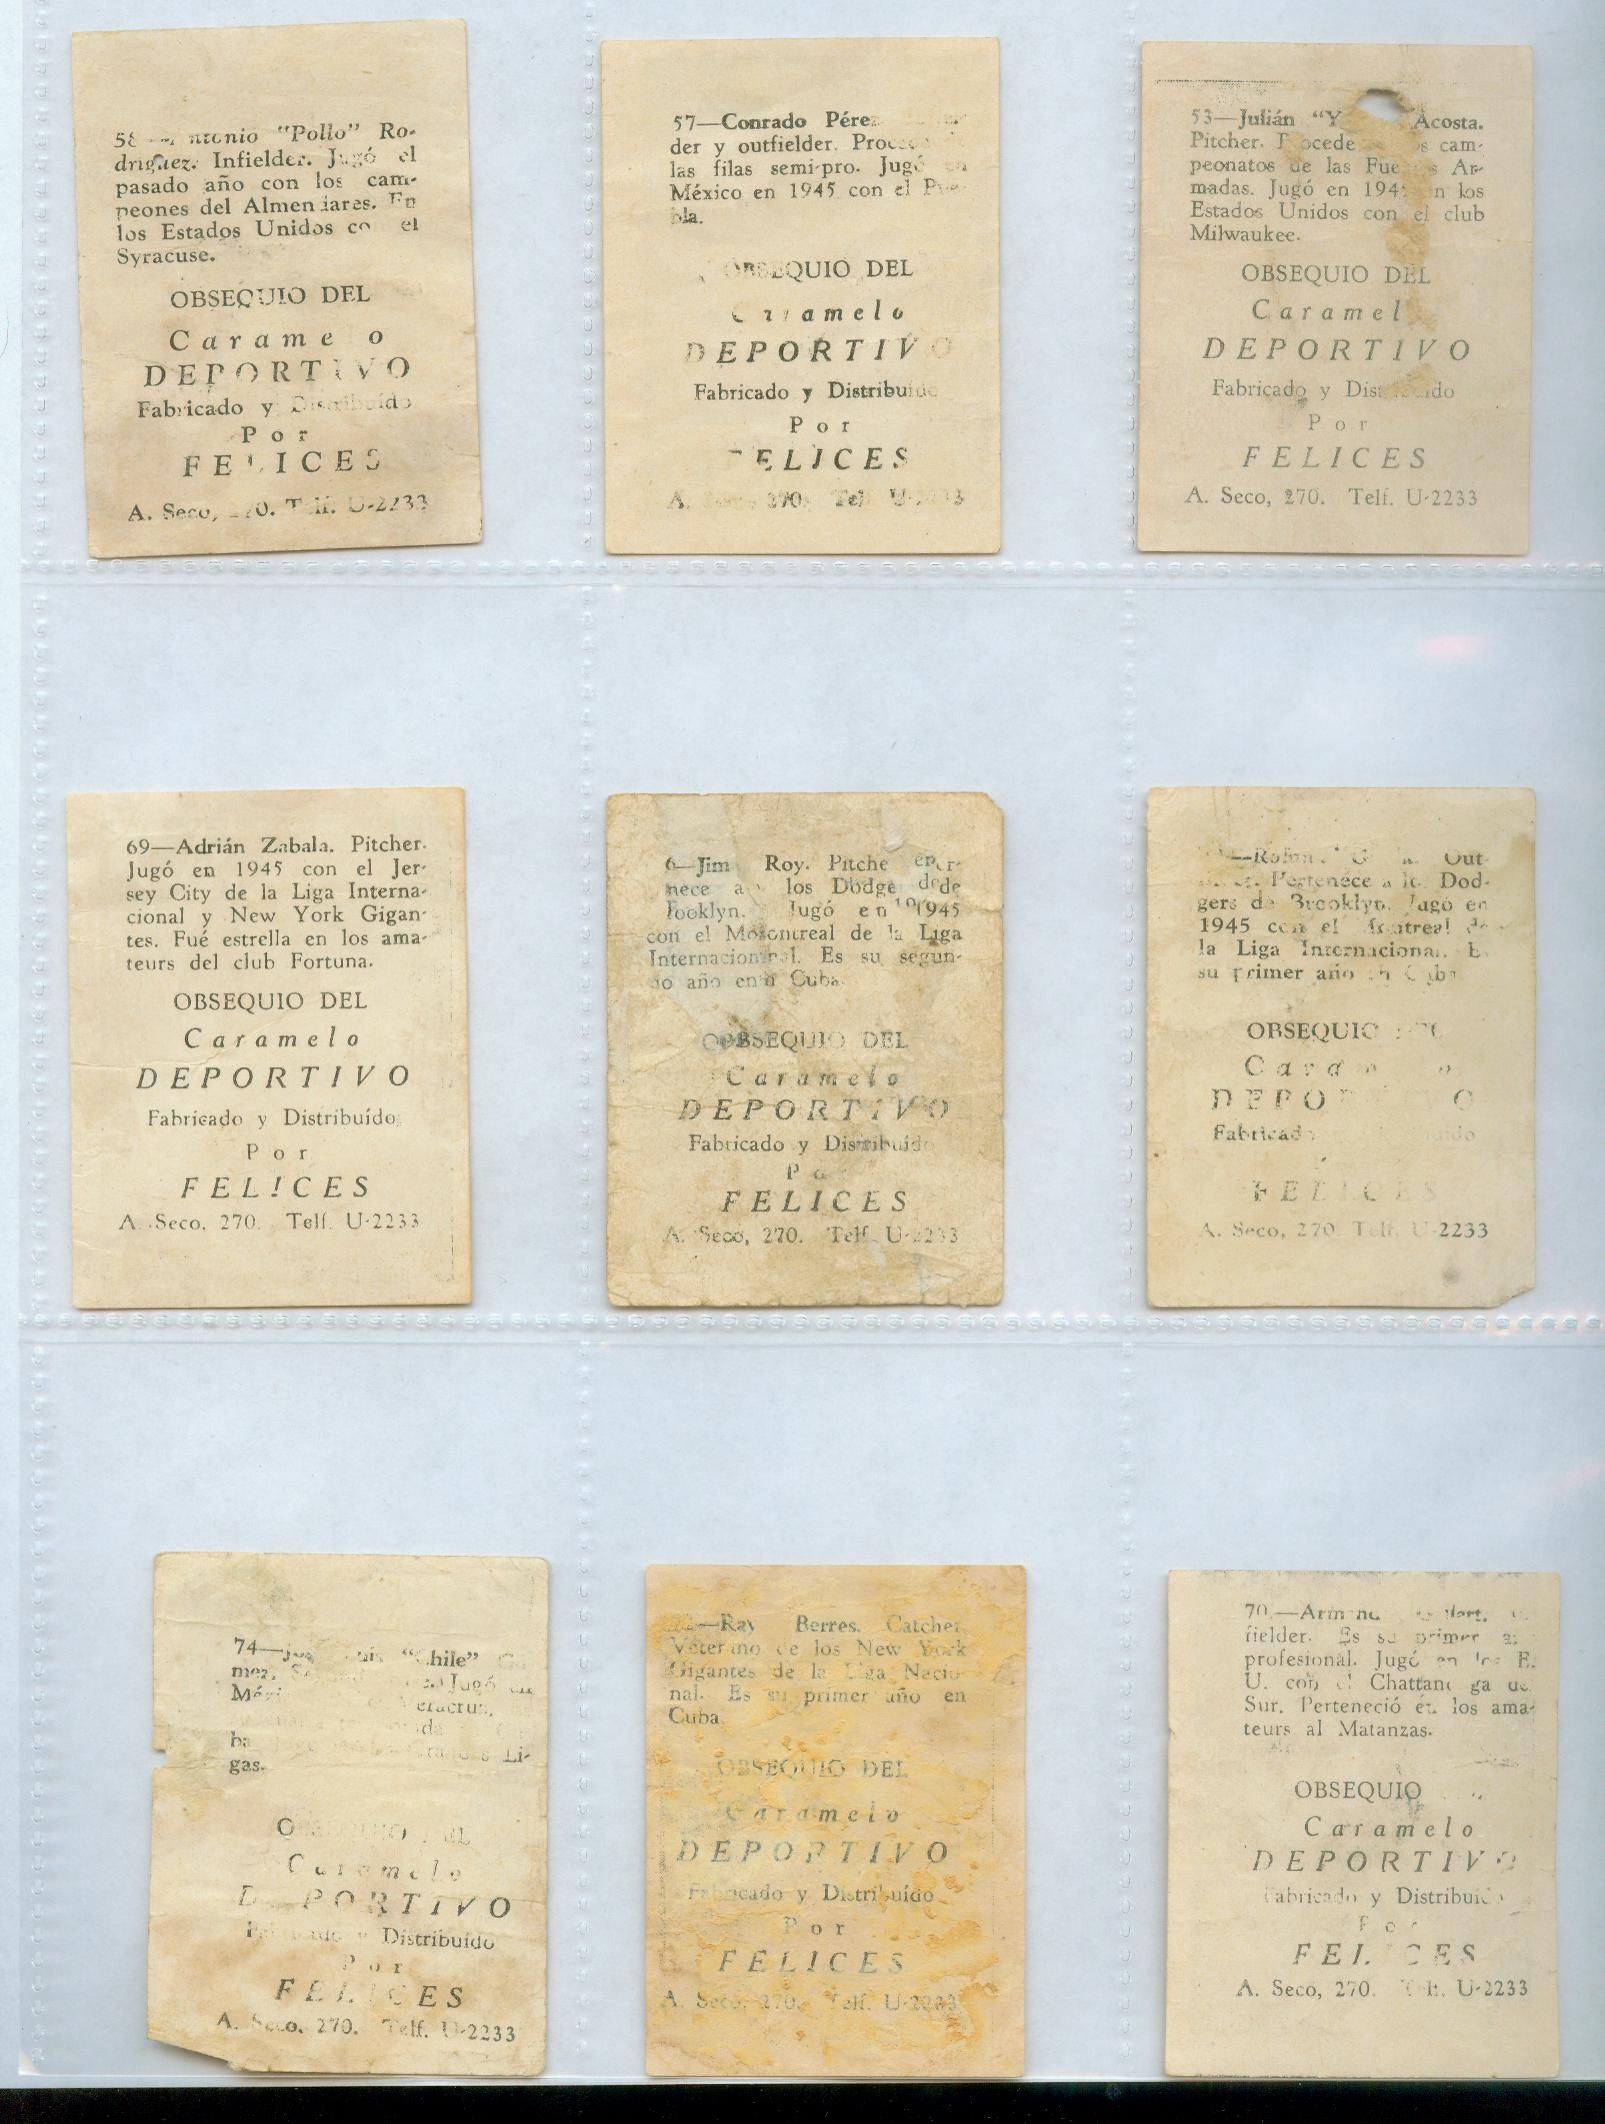 "Pollo" Ro-
driguez. Infielder. Jugó el
pasado año con los cam-
peones del Almendares. En
los Estados Unidos el
Syracuse.
OBSEQUIO DEL
Caramelo
DEPORTIVO
Fabricado y Distribuído
Por
FELICES
A. Seco, 270. Telf. U-2233
57—Conrado Pérez
der y outfielder.
las filas semi-pro. Jugó en
México en 1945 con el Pue-
bla.
OBSEQUIO DEL
Caramelo
DEPORTIVO
Fabricado y Distribuído
Por
FELICES
A. 270. Telf. U-2233
53—Julián Acosta.
Pitcher. Procede cam-
peonatos de las Fuerzas Ar-
madas. Jugó en en los
Estados Unidos con el club
Milwaukee.
OBSEQUIO DEL
Caramel
DEPORTIVO
Fabricado y Distribuído
Por
FELICES
A. Seco, 270. Telf. U-2233
69—Adrián Zabala. Pitcher.
Jugó en 1945 con el Jer-
sey City de la Liga Interna-
cional y New York Gigan-
tes. Fué estrella en los ama-
teurs del club Fortuna.
OBSEQUIO DEL
Caramelo
DEPORTIVO
Fabricado y Distribuído
Por
FELICES
A. Seco, 270. Telf. U-2233
6—Jim Roy. Pitcher
nece a los Dodge de
Jugó en 1945
con el Montreal de la Liga
Internacional. Es su segun-
do año en Cuba.
OBSEQUIO DEL
Caramelo
DEPORTIVO
Fabricado y Distribuído
Por
FELICES
A. Seco, 270. Telf. U-2233
Out-
Pertenece a los Dod-
gers de Brooklyn. Jugó en
1945 con el Montreal de
la Liga Internacional. Es
su primer año en Cuba
OBSEQUIO
Caramelo
DEPORTIVO
Fabricado
FELICES
A. Seco, 270. Telf. U-2233
74— "Chile"
Jugó en
Veracruz.
gas.
Li-
OBSEQUIO DEL
Caramelo
DEPORTIVO
Distribuído
Por
FELICES
A. Seco, 270. Telf. U-2233
—Ray Berres. Catcher.
Veterano de los New York
Gigantes de la Liga Nacio-
nal. Es su primer año en
Cuba.
OBSEQUIO DEL
Caramelo
DEPORTIVO
Fabricado y Distribuído
Por
FELICES
A. Seco, 270. Telf. U-2233
70.—
fielder. Es su primer año
profesional. Jugó en los E.
U. con el Chattanooga del
Sur. Perteneció en los ama-
teurs al Matanzas.
OBSEQUIO
Caramelo
DEPORTIVO
Fabricado y Distribuído
Por
FELICES
A. Seco, 270. Telf. U-2233